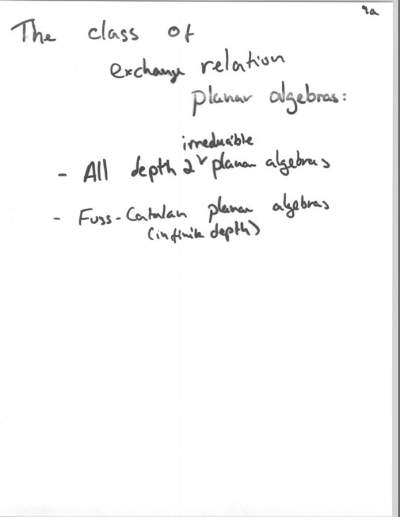 9a
The class of
exchange relation
planar algebras:
irreducible
- All depth 2 planar algebras
- Fuss-Catalan planar algebras
(infinite depth)